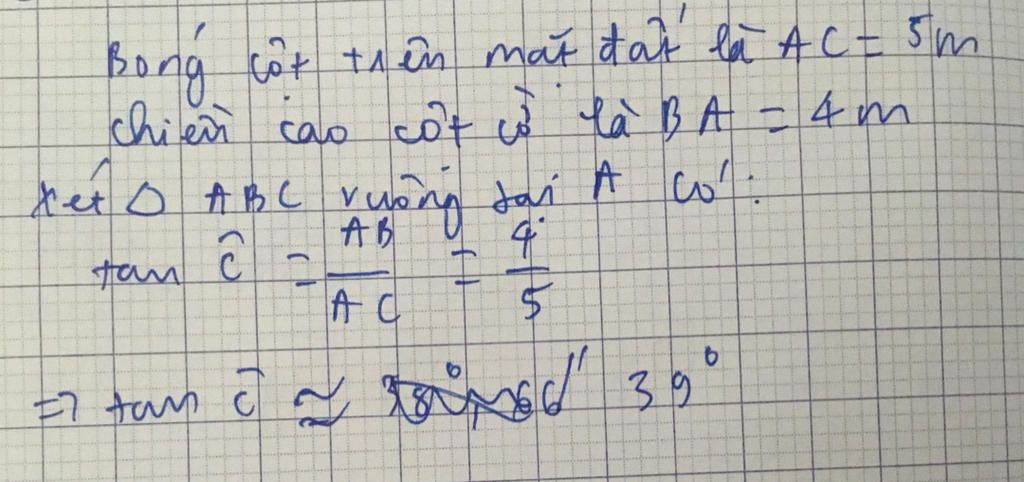 Bóng cột trên mặt đất là AC = 5m
chiều cao cột cờ là BA = 4m
Xét △ ABC vuông tại A có :
tan Ĉ = AB/AC = 4/5
=> tan Ĉ ≈ 39°